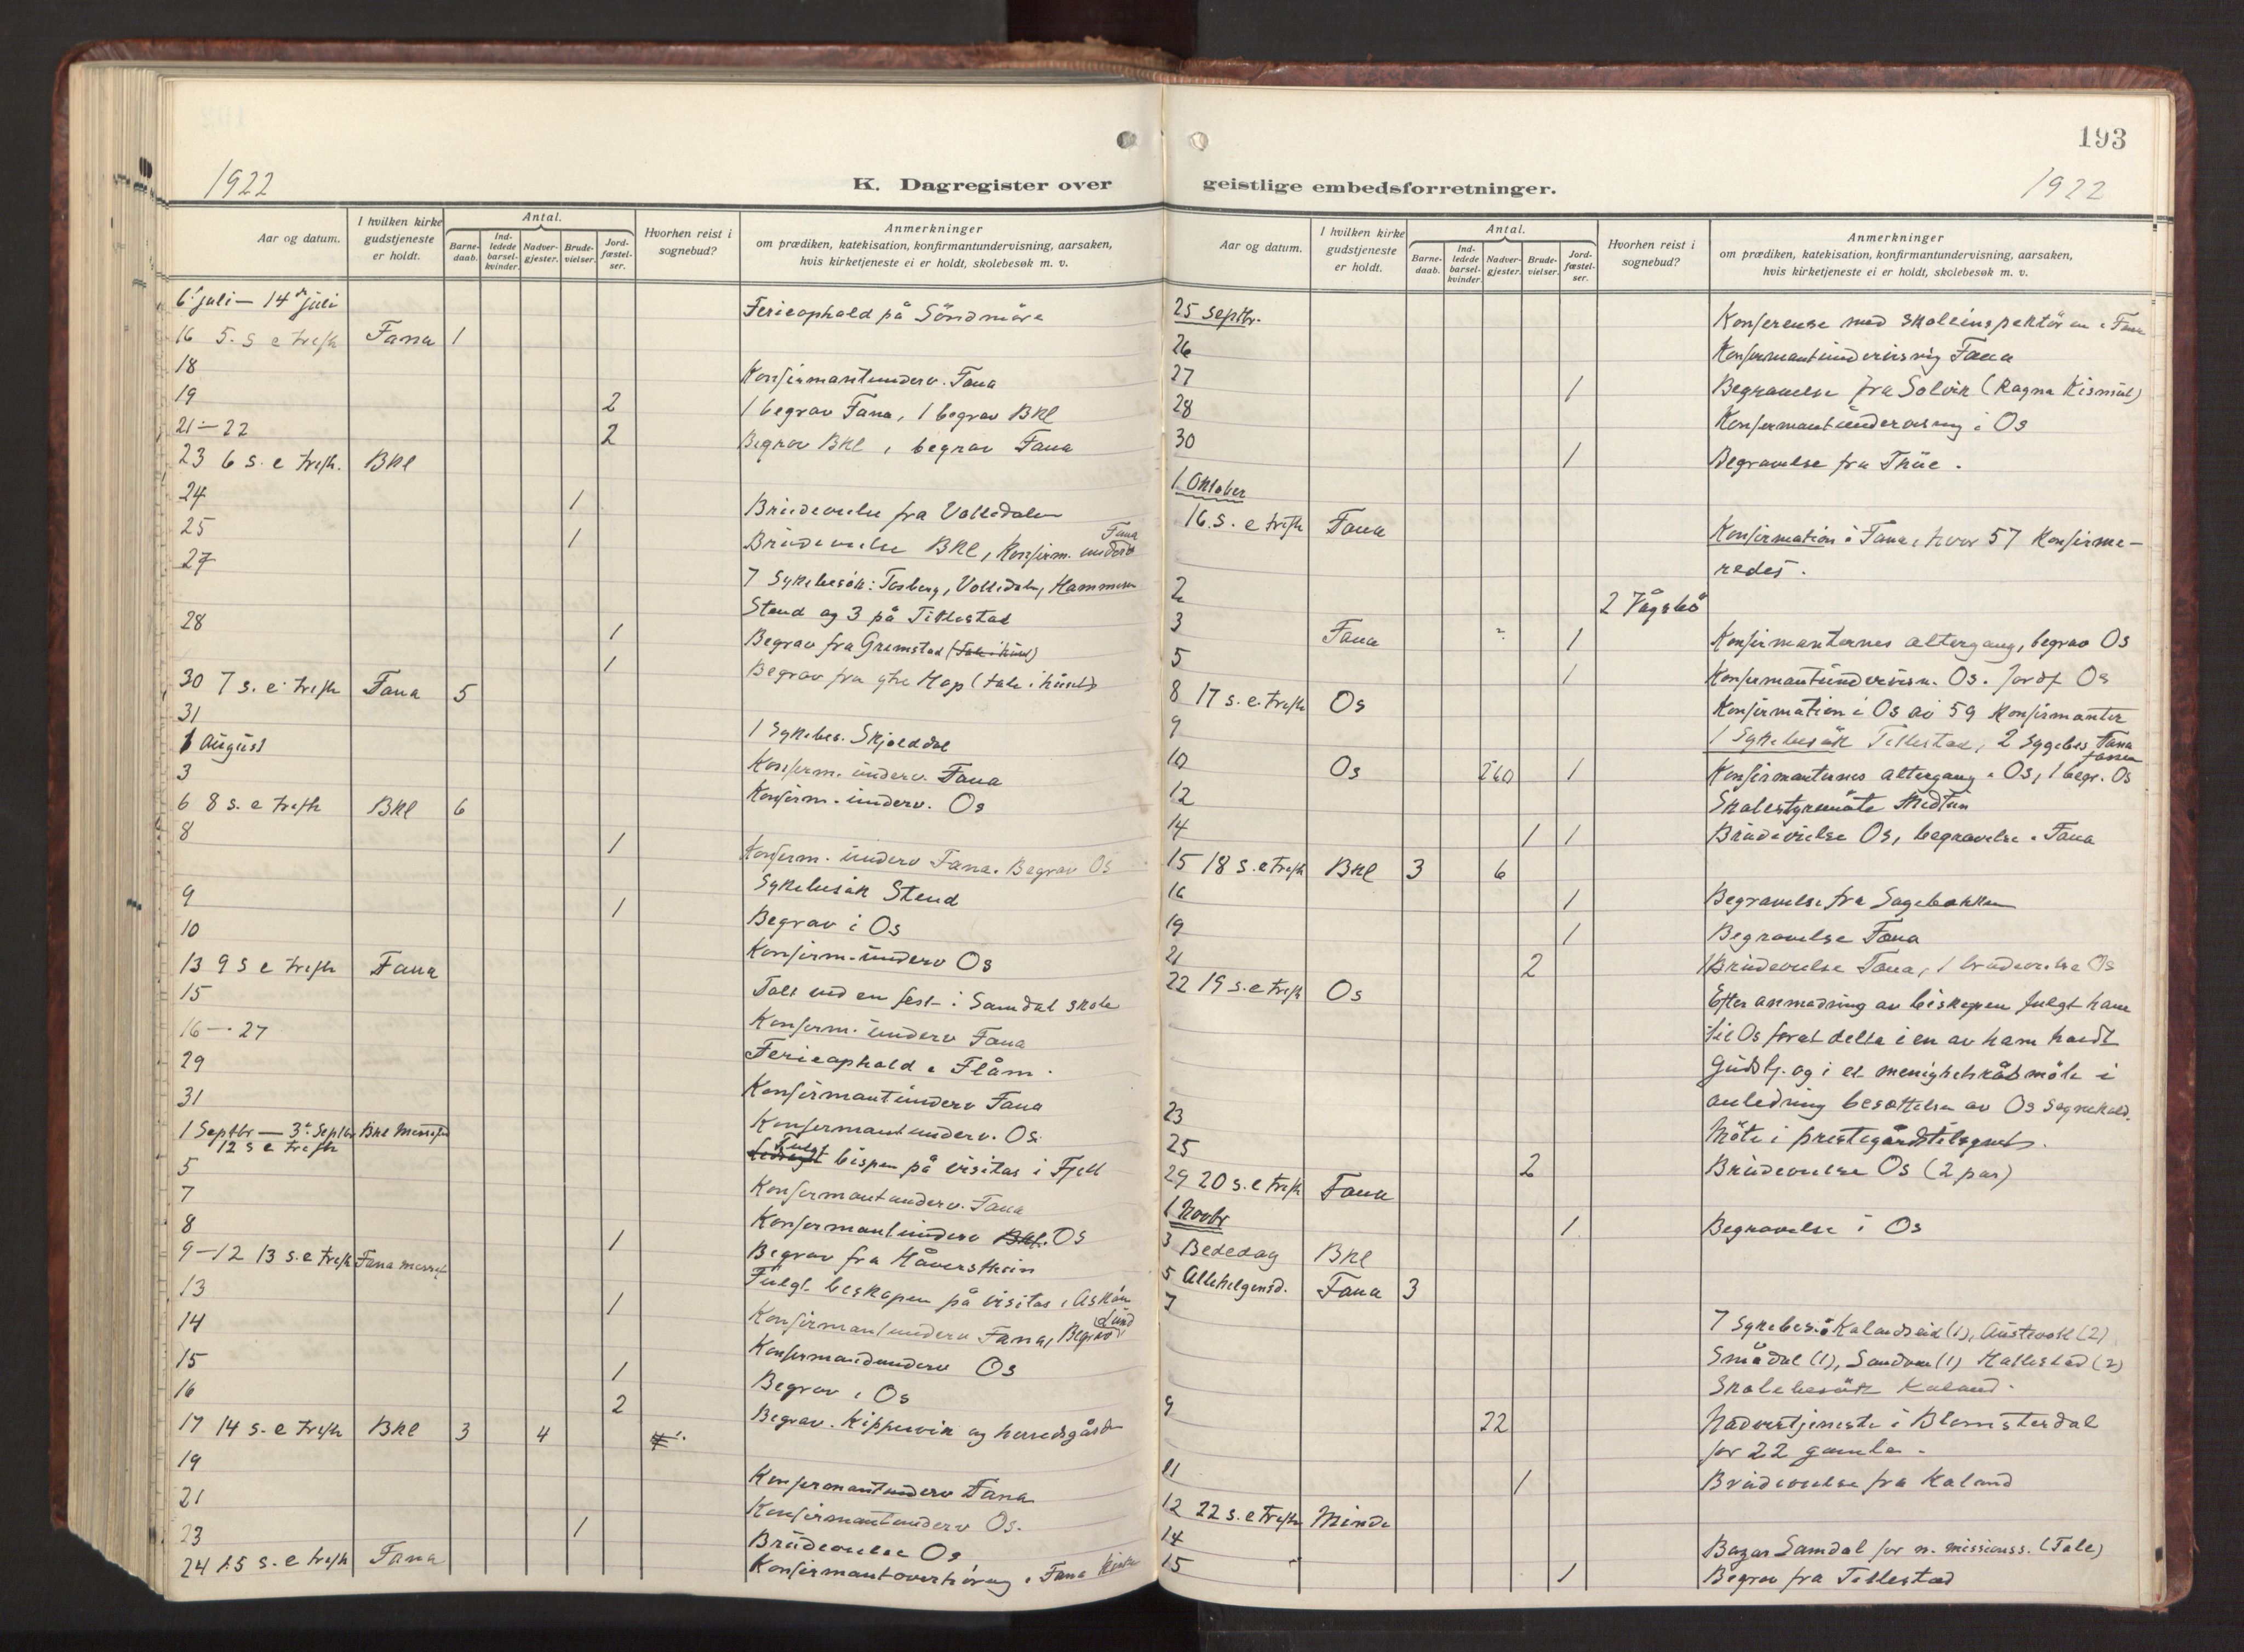 193
1922
K. Dagregister over
geistlige embedsforretninger.
1922
Aar og datum.
I hvilken kirke gudstjeneste er holdt.
Antal.
Barne-daab.
Ind-ledede barsel-kvinder.
Nadver-gjester.
Brude-vielser.
Jord-fæstel-ser.
Hvorhen reist i sognebud?
Anmerkninger
om prædiken, katekisation, konfirmantundervisning, aarsaken,
hvis kirketjeneste ei er holdt, skolebesøk m. v.
6 juli — 14 juli Ferieophold på Söndmöre
16 5. s e trefh Fana 1
18 Konfirmantunderv. Fana
19 2 1 begrav Fana, 1 begrav BKl
21 — 22 2 Begrav BKl, begrav Fana
23 6 s. e trefh. BKl
24 1 Brudevielse fra Valledalen
25 1 Brudevielse BKl, Konfirm. underv Fana
27 7 Sykebesök: Tosberg, Valledalen, Hammeren
Stend og 3 på Titlestad
28 1 Begrav fra Grimstad
1 Begrav fra ytre Hop (tale i huset)
30 7 s. e. trefh Fana 5
31 1 Sykebes. Skjolddal
1 August Konfirm. underv. Fana
3 Konfirm. underv. Os
6 8 s. e trefh BKl 6
8 1 Konfirm. underv Fana. Begrav Os
Sykebesök Stend
9 1 Begrav i Os
10 Konfirm. underv Os
13 9 s e trefh Fana
15 Talt ved en fest i Samdal skole
Konfirm. underv Fana
16 — 27 Ferieophold i Flåm.
29 Konfirmantunderv Fana
31 Konfirmantunderv. Os.
1 Septbr — 3 Septbr BKl Messefald
12 s e trefh Fulgt bispen på visitas i Fjell
5 Konfirmantunderv. Fana
7 Konfirmantunderv BKl. Os
8 1 Begrav fra Håvardstein
9 — 12 13 s. e trefh Fana messef Fulgt biskopen på visitas i Asköy
13 1 Konfirmantunderv Fana, Begrav Lund
14 Konfirmandunderv Os
15 1 Begrav i Os
16 2 Begrav. Kippervik og herredsgården
17 14 s. e trefh BKl 3 4
19 Konfirmantunderv Fana
21 Konfirmantunderv Os.
23 1 Brudevielse Os
24 15 s. e trefh Fana Konfirmantoverhöring i Fana kirke
Aar og datum.
I hvilken kirke gudstjeneste er holdt.
Antal.
Barne-daab.
Ind-ledede barsel-kvinder.
Nadver-gjester.
Brude-vielser.
Jord-fæstel-ser.
Hvorhen reist i sognebud?
Anmerkninger
om prædiken, katekisation, konfirmantundervisning, aarsaken,
hvis kirketjeneste ei er holdt, skolebesøk m. v.
25 septbr. Konferense med skoleinspektören i Fana
26 Konfirmantundervisnig Fana
27 1 Begravelse fra Solvik (Ragna Kismul)
28 Konfirmantundervisning i Os
30 1 Begravelse fra Thue.
1 Oktober
16. s. e trefh Fana Konfirmation i Fana, hvor 57 konfirme-
redes.
2 2 Vågsbö
3 Fana 1 Konfirmanternes altergang, begrav Os
5 1 Konfirmantundervisn. Os. Jordf Os
8 17 s. e. trefh Os Konfirmation i Os av 59 konfirmanter
9 1 Sykebesök Titlestad, 2 sygebes Fana
10 Os 260 1 Konfirmanternes altergang i Os, 1 begr. Os
12 Skolestyremöte Midtun
14 1 1 Brudevielse Os, begravelse i Fana
15 18 s. e trefh BKl 3 6
16 1 Begravelse fra Sagebakken
19 1 Begravelse Fana
21 2 1 Brudevielse Fana, 1 brudevielse Os
22 19 s. e trefh Os Efter anmodning av biskopen fulgt ham
til Os forat delta i en av ham holdt
Gudstj. og i et menighetsrådsmöte i
anledning besættelsen av Os sognekald.
23 Möte i prestegårdstilsynet.
25 2 Brudevielse Os (2 par)
29 20 s. e trefh Fana
1 Novbr 1 Begravelse i Os
3 Bededag BKl
5 Allehelgensd. Fana 3
7 7 Sykebes.: Kalandseid (1), Austevoll (2)
Smådal (1), Sandven (1) Hatlestad (2)
Skolebesök Kaland.
9 22 Nadvertjeneste i Blomsterdal
for 22 gamle.
11 1 Brudevielse fra Kaland
12 22 s. e trefh Minde
14 Bazar Samdal for n. missionss. (Tale)
15 1 Begrav fra Titlestad